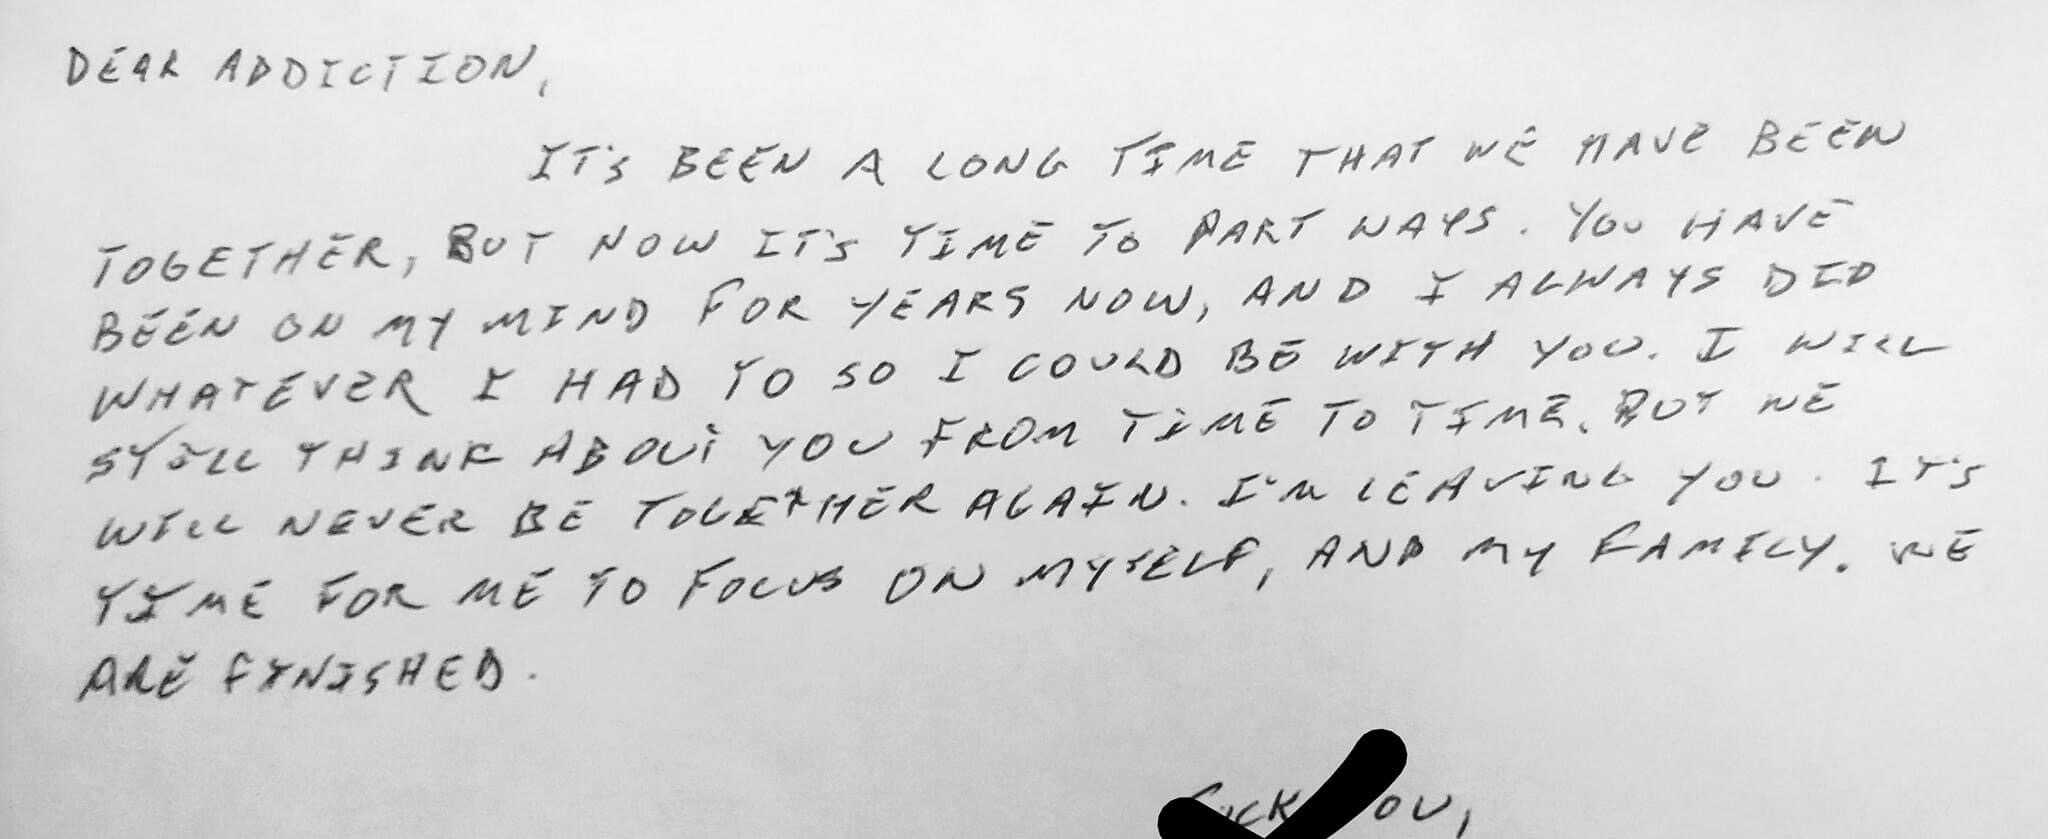 DEAR ADDICTION,
IT'S BEEN A LONG TIME THAT WE HAVE BEEN
TOGETHER, BUT NOW IT'S TIME TO PART WAYS. YOU HAVE
BEEN ON MY MIND FOR YEARS NOW, AND I ALWAYS DID
WHATEVER I HAD TO SO I COULD BE WITH YOU. I WILL
STILL THINK ABOUT YOU FROM TIME TO TIME. BUT WE
WILL NEVER BE TOGETHER AGAIN. I'M LEAVING YOU. IT'S
TIME FOR ME TO FOCUS ON MYSELF, AND MY FAMILY. WE
ARE FINISHED.
FUCK YOU,